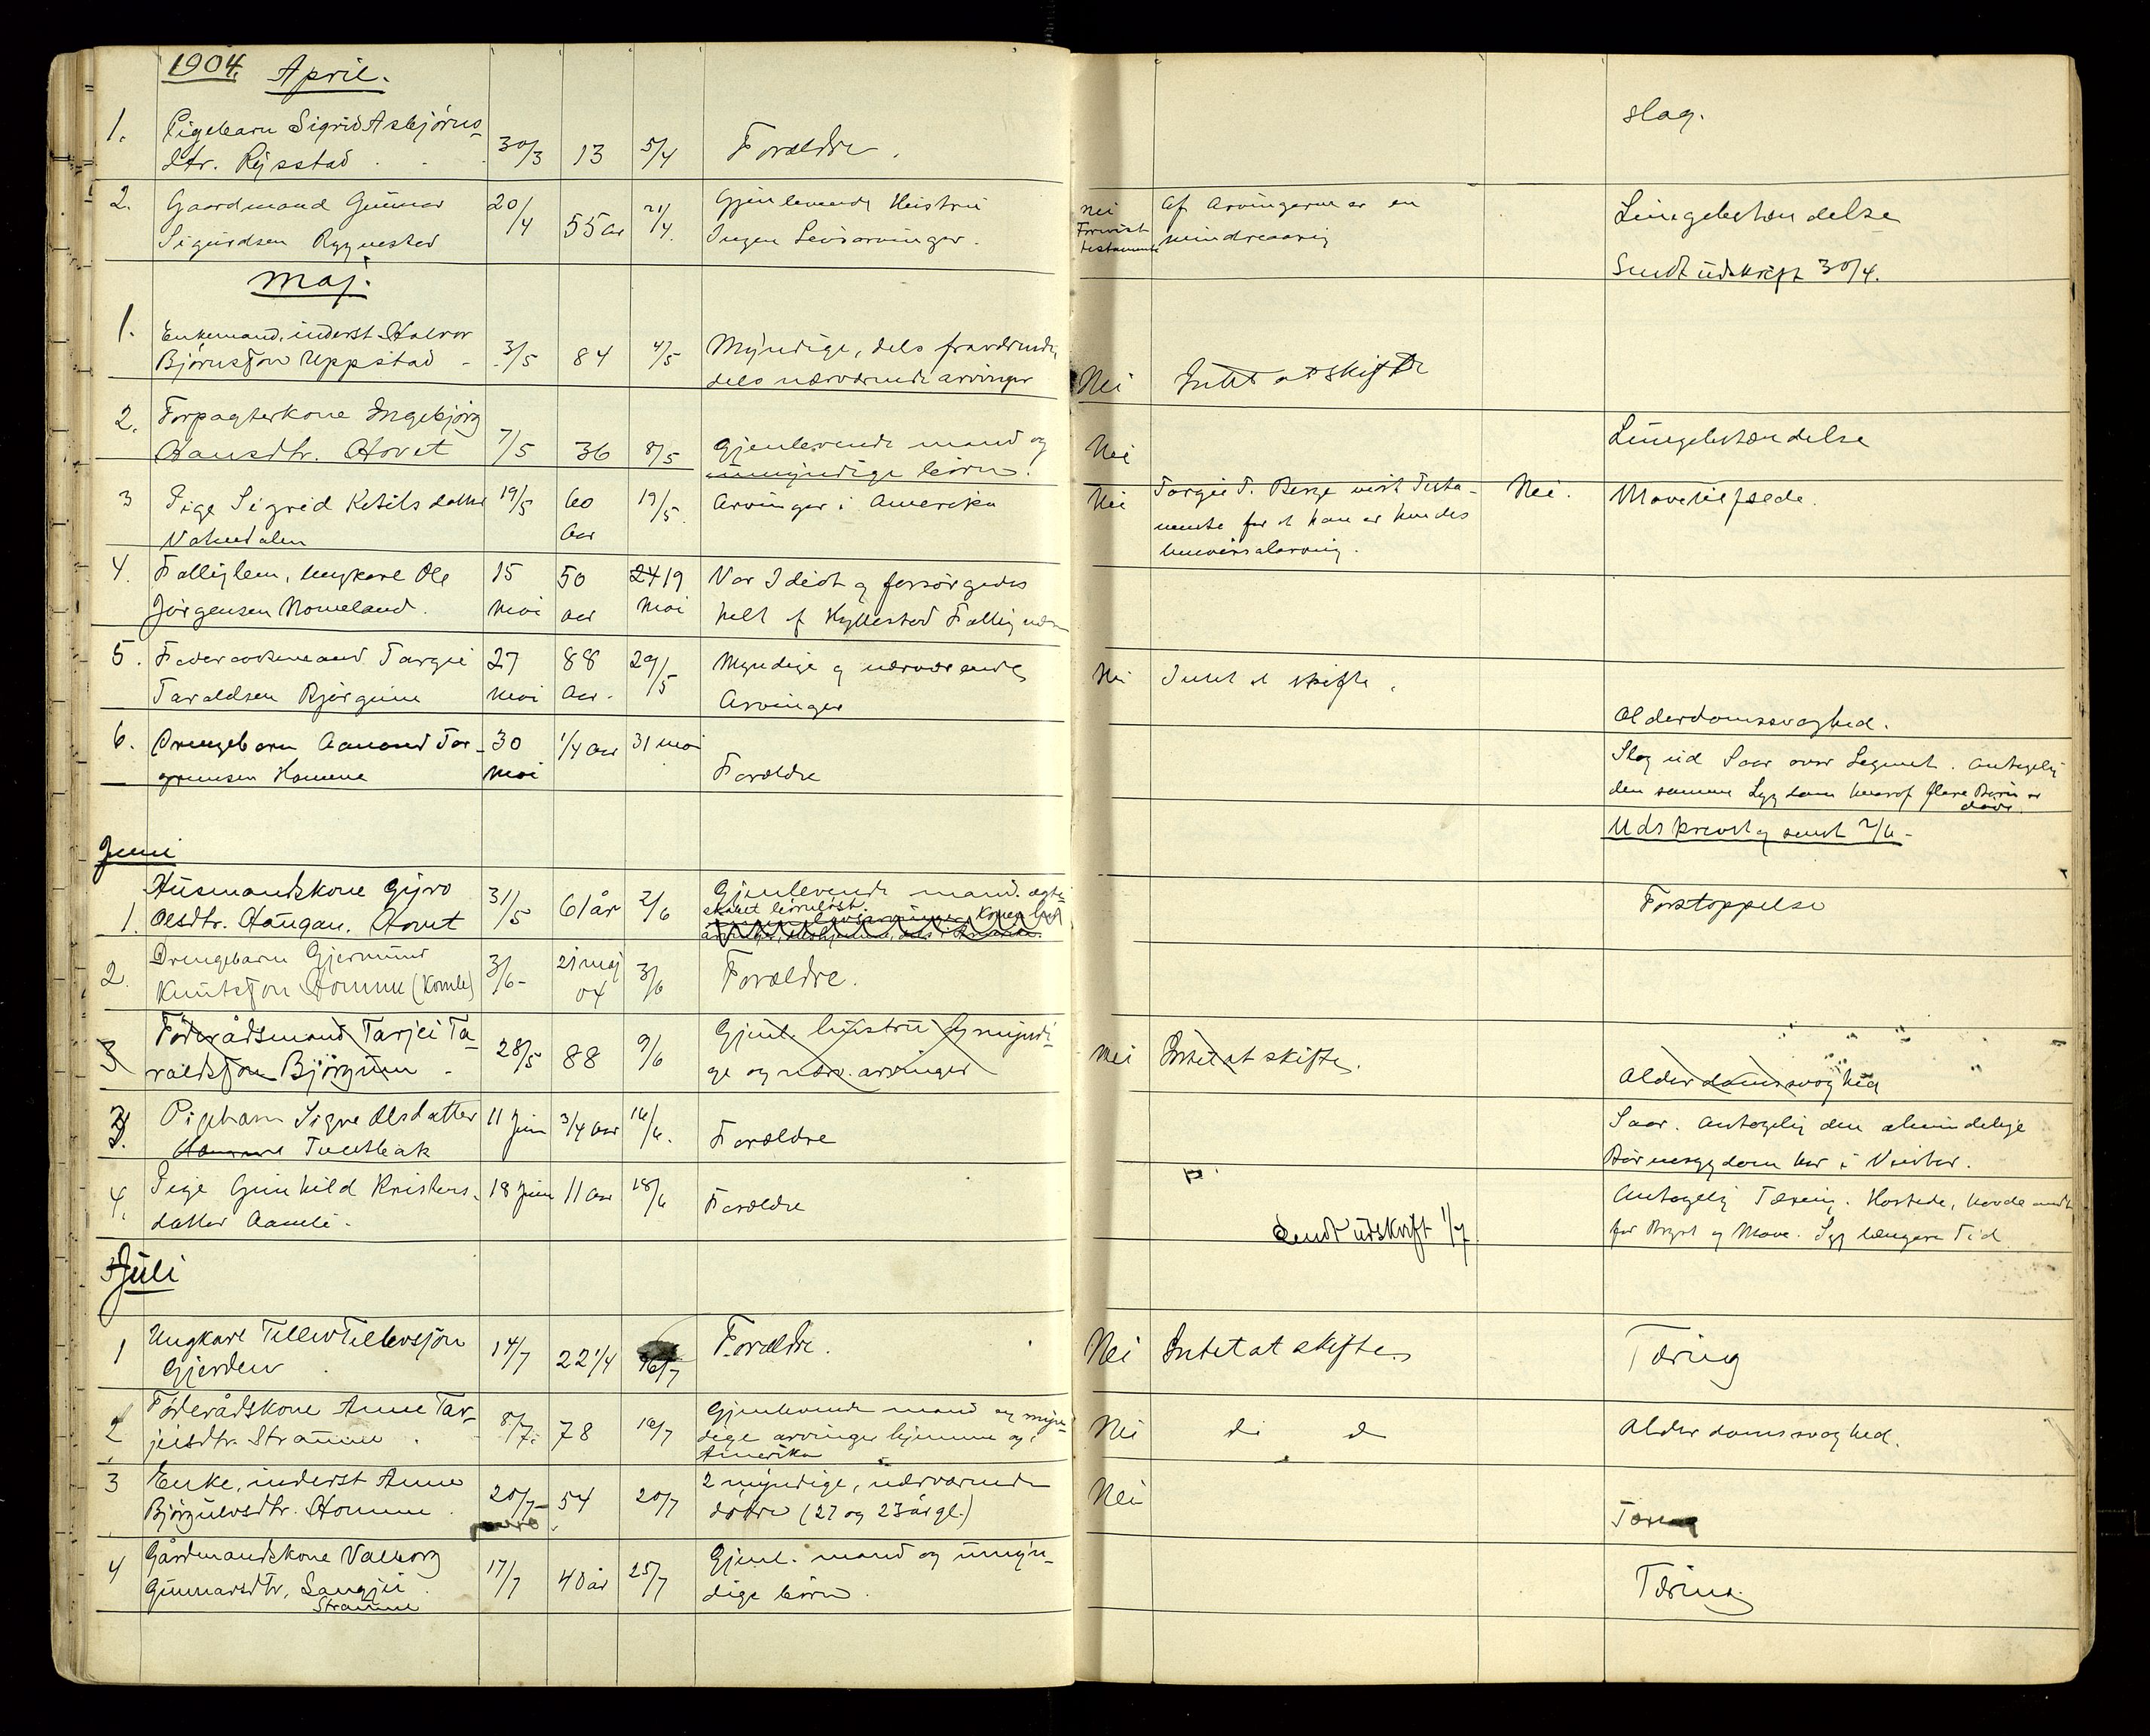 1904. April.
1. Pigebarn Sigrid Asbjörns-
dtr. Rysstad . . 30/3 13 5/4 Forældre.
slag.
2. Gaardmand Gunnar
Sigurdsen Rygnestad 20/4 55 aar 21/4. Gjenlevende Heistrü
Ingen Livsarvinger.
nei Af Arvingerne er en
mindreaarig
Lungebetændelse
Sendt üdskrift 30/4.
Maj.
1. Enkemand, inderst Halvor
Björnssön Uppstad - 3/5 84 4/5 Myndige, dels fraværende,
dels nærværende arvinger
Nei Intet at skifte
2. Forpagterkone Ingebjörg
Hansdtr. Hovet 7/5 36 8/5 Gjenlevende mand og
ümyndige börn.
Nei
Lüngebetændelse
3 Pige Sigrid Ketilsdatter
19/5 60
Aar 19/5. Arvinger i Amerika
Nei Torgie T. Berge vist Testa-
mente for at han er hendes
Universalarving.
Nei.
4. Fattiglem, ungkarl Ole
Jörgensen Nomeland. 15
Mai 50
aar 24 19
Mai Var Idiot og forsörgedes
helt af Hyllestad
5. Taraldsen Björgum 27
Mai 88
Aar. 29/5 Myndige og nærværende
Arvinger
Nei Intet at skifte.
Alderdomssvaghed.
6. Drengebarn Aamund Tor-
grimsen Homme 30
Mai 1/4 Aar 31 mai Forældre
Slag üd Saar over Legemet. Antagelig
den samme Sygdom hvoraf flere Börn er
döde.
Udskrevet og sendt 2/6 -
Juni
1. Hüsmandskone Gyro
Olsdtr. Haugan. Hovet 31/5 61 år 2/6 Gjenlevende mand. ægte-
skabet börnlöst.
Forstoppelse
2. Drengebarn Gjermünd
Knütssön Homme (Komle) 3/6- 21 maj
04 3/6 Forældre.
3 Föderådsmand Tarjei Ta-
raldssön Björgum - 28/5 88 9/6 Gjenl. hüstrü og myndi-
ge og nærv. arvinger
Nei Intet at skifte.
Alderdomssvaghed
3. Pigebarn Signe Olsdatter
Tveitebak 11 Juni 3/4 aar 16/6. Forældre
Saar. Antagelig den almindelige
Börnesygdom her i Vinter.
4. Pige Gunhild Kristens-
datter Aamli. 18 Juni 11 Aar 18/6 Forældre
Antagelig Tæring. Hostede, havde ondt
for Bryst og Mave. Syg længere Tid
Sendt üdskrift 1/7.
Jüli
1 Ungkarl Tellev Tellevssön
Gjerden 14/7 22 1/4 16/7 Forældre.
Nei Intet at skifte.
Tæring
2 Föderådskone Anne Tar-
jeisdtr. Straume . 8/7. 78 16/7 Gjenlevende mand og myn-
dige arvinger hjemme og i
Amerika
Nei d. d
Alderdomssvaghed.
3 Enke, inderst Anne
Björgulvsdtr. Homme . 20/7 54 20/7 2 myndige, nærværende
döttre (27 og 23 år gl.)
Nei
Tæring
4 Gårdmandskone Valborg
Gunnarsdtr, Langjei .
Straume 17/7 40 år 25/7 Gjenl. mand og ümyn-
dige börn.
Tæring